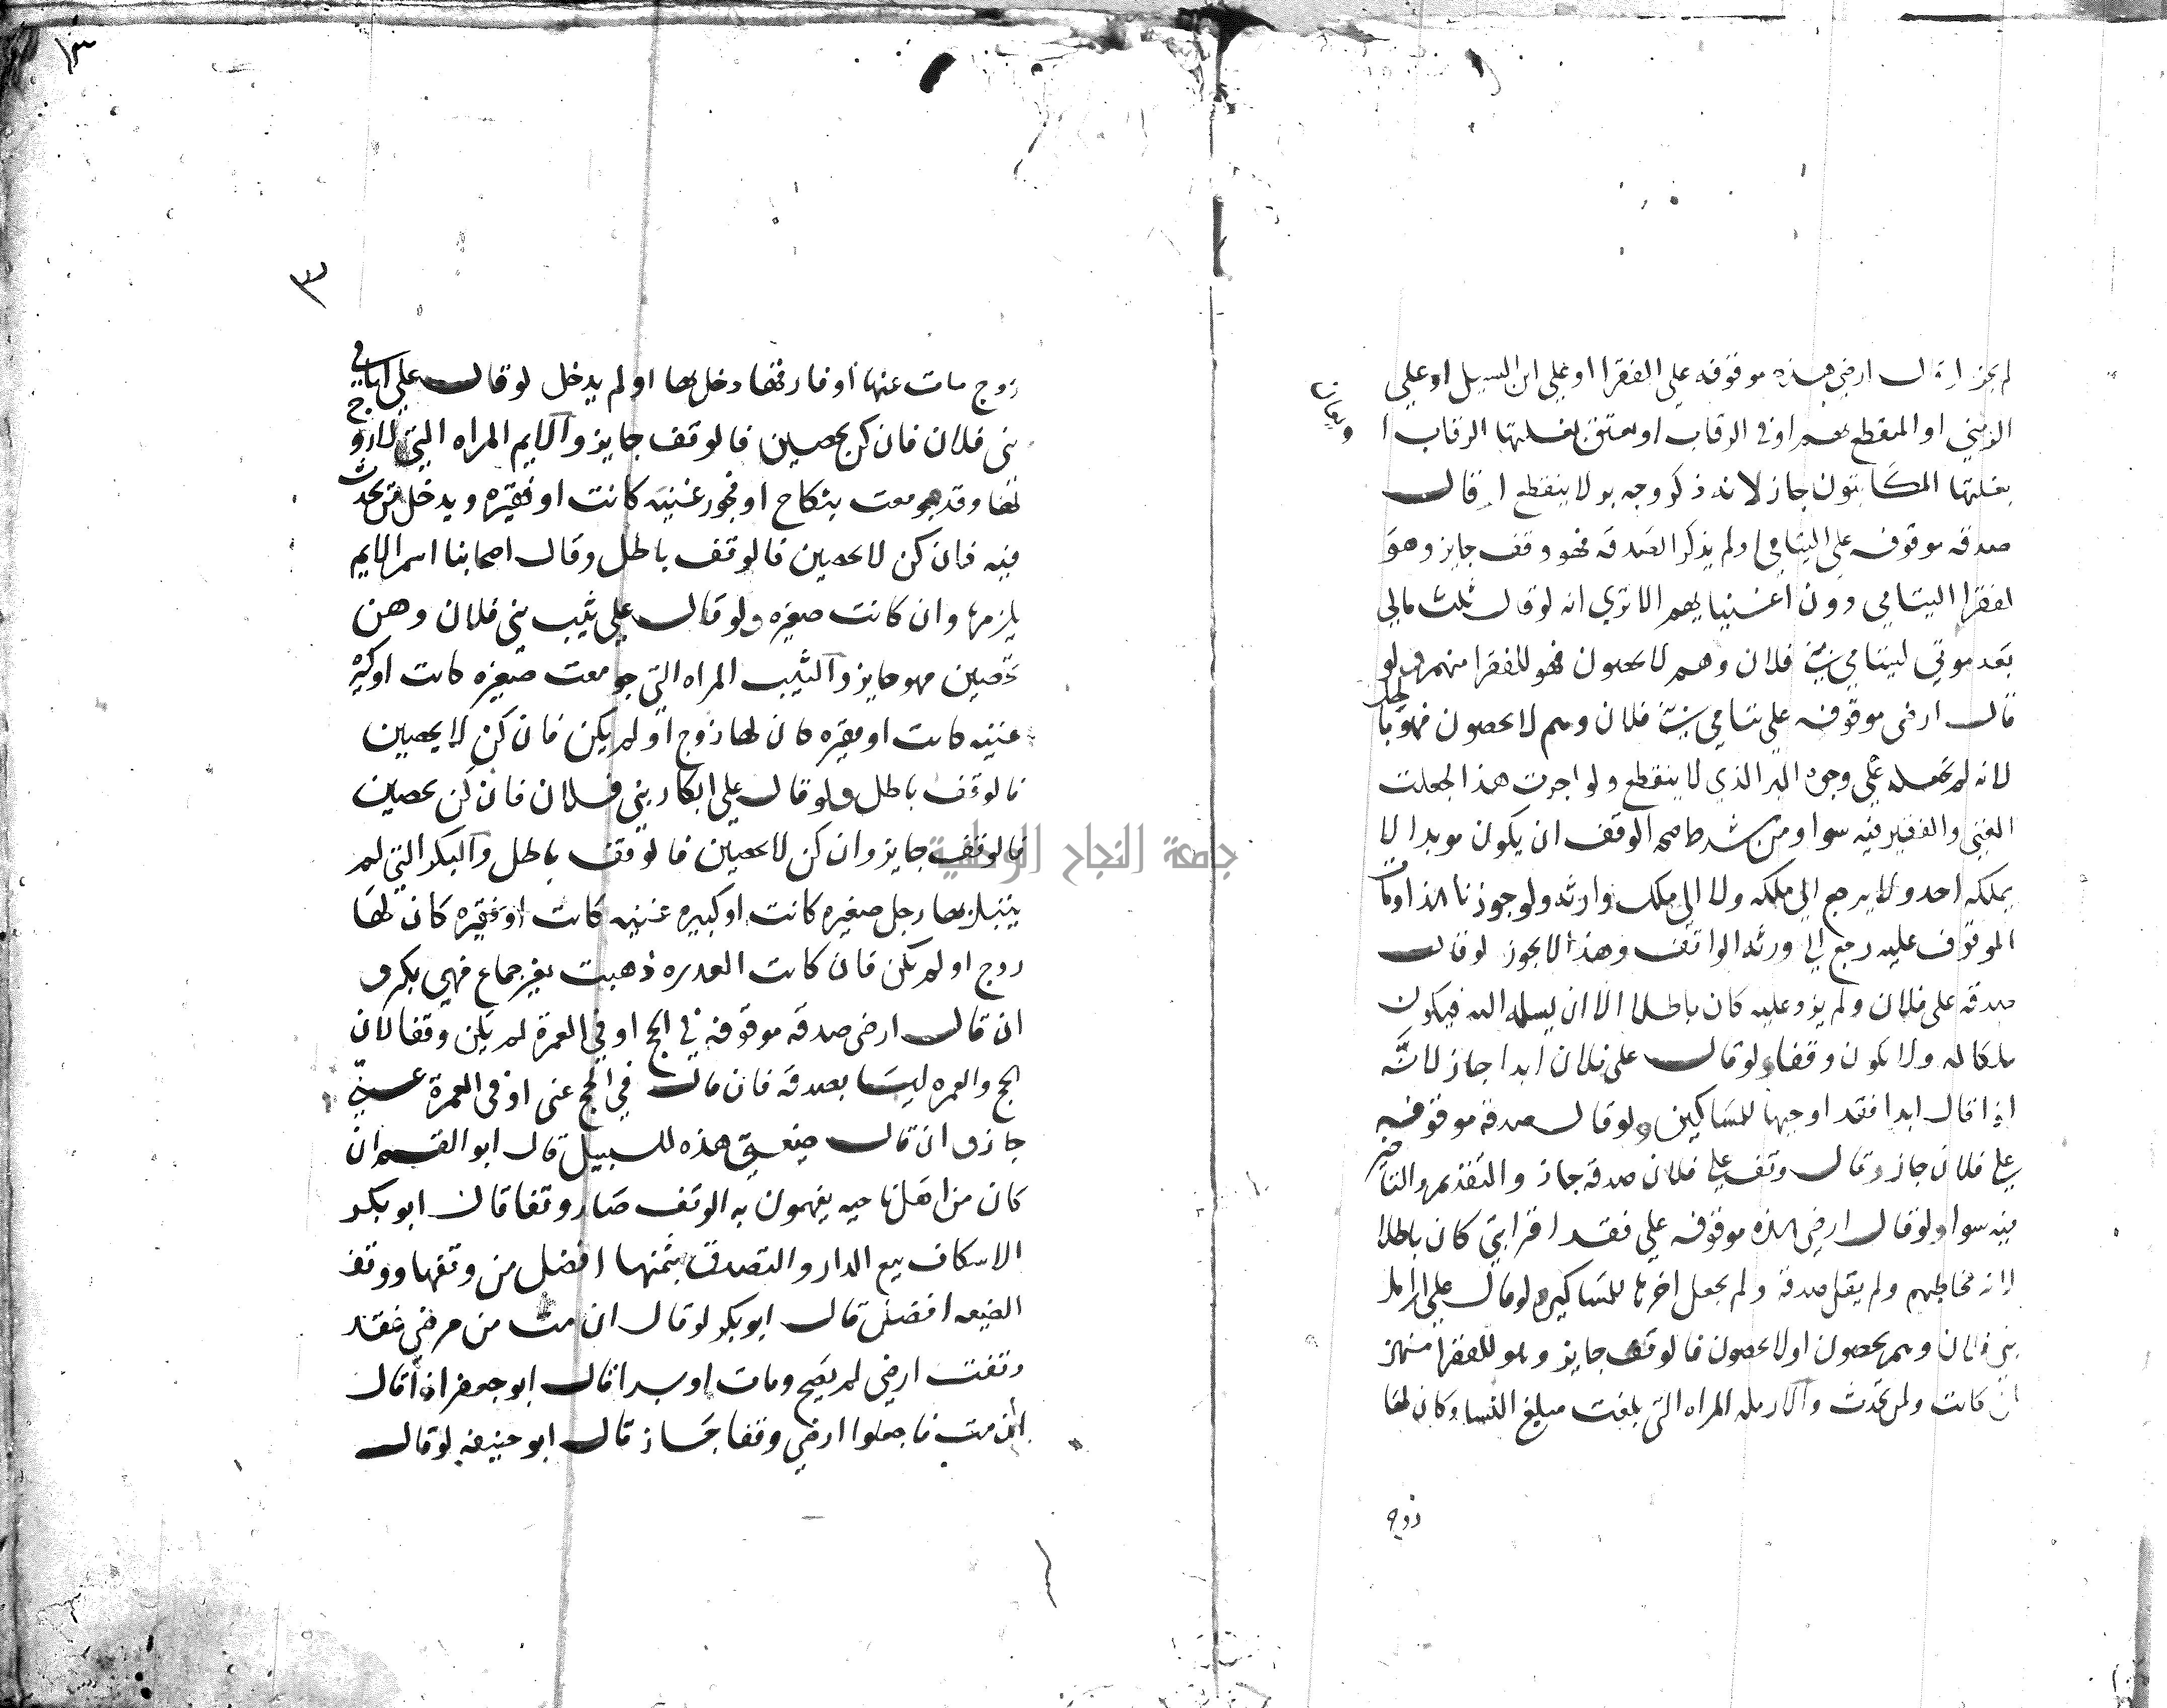 لم يجز او قال ارضي هذه موقوفه علي الفقرا او علي ابن السبيل او علي
الزمني او المنقطع بهم او في الرقاب او يعتق بغلتها الرقاب ا
ويعان
بغلتها المكاتبون جاز لانه ذكر وجه بر لا ينقطع او قال
صدقه موقوفه علي اليتامي او لم يذكر الصدقه فهو وقف جايز وهو
لفقرا اليتامي دون اغنيايهم الا تري انه لو قال ثلث مالي
بعد موتي ليتامي بني فلان وهم لا يحصون فهو للفقرا منهم ولو
قال ارضي موقوفه علي يتامي بني فلان وهم لا يحصون فهو باطل
لانه لم يجعله علي وجوه البر الذي لا ينقطع ولو اجرت هذا لجعلت
الغني والفقير فيه سوا ومن شرط صحه الوقف ان يكون موبدا لا
يملكه احد ولا يرجع الي ملكه ولا الي ملك وارثه ولو جوزنا هذا ومات
الموقوف عليه رجع الي ورثه الواقف وهذا لا يجوز لو قال
صدقه علي فلان ولم يزد عليه كان باطلا الا ان يسلمه اليه فيكون
ملكا له ولا يكون وقفا ولو قال علي فلان ابدا جاز لانه
اذا قال ابدا فقد اوجبها للمساكين ولو قال صدقه موقوفه
علي فلان جاز وقال وقف علي فلان صدقه جاز والتقديم والتاخير
فيه سوا ولو قال ارضي هذه موقوفه علي فقرا قرابتي كان باطلا
لانه مخاطبهم ولم يقل صدقة ولم يجعل اخرها للمساكين ولو قال علي ارامل
بني فلان وهم يحصون او لا يحصون فالوقف جايز وهو للفقرا منهن
ان كانت ولمن تحدث والارمله المراه التي بلغت مبلغ النسا وكان لها
زوج
١٣
٣
زوج مات عنها او فارقها دخل بها او لم يدخل لو قال علي ايامي
بني فلان فان كن يحصين فالوقف جايز والايم المراه التي لا زوج
لها وقد جومعت بنكاح او فجور غنيه كانت او فقيره ويدخل من يحدث
فيه فان كن لا يحصين فالوقف باطل وقال اصحابنا اسم الايم
يلزمها وان كانت صغيره ولو قال علي ثيب بني فلان وهن
يحصين فهو جايز والثيب المراه التي جومعت صغيره كانت او كبيره
غنيه كانت او فقيره كان لها زوج او لم يكن فان كن لا يحصين
فالوقف باطل ولو قال علي ابكار بني فلان فان كن يحصين
فالوقف جايز وان كن لا يحصين فالوقف باطل والبكر التي لم
يبتل بها رجل صغيره كانت او كبيره غنيه كانت او فقيره كان لها
زوج او لم يكن فان كانت العدره ذهبت بغير جماع فهي بكر و
ان قال ارضي صدقه موقوفه في الحج او في العمرة لم يكن وقفا لان
الحج والعمره ليسا بصدقه فان قال في الحج عني او في العمرة عني
جاز و ان قال ضيعتي هذه للسبيل قال ابو القسم ان
كان من اهل ناحيه يفهمون به الوقف صار وقفا قال ابو بكر
الاسكاف بيع الدار والتصدق بثمنها افضل من وقفها ووقف
الضيعه افضل قال ابو بكر لو قال ان مت من مرضي فقد
وقفت ارضي لم يصح ومات او برا قال ابو جعفر اذا قال
ان مت فاجعلوا ارضي وقفا جاز قال ابو حنيفه لو قال
جامعة النجاح الوطنية